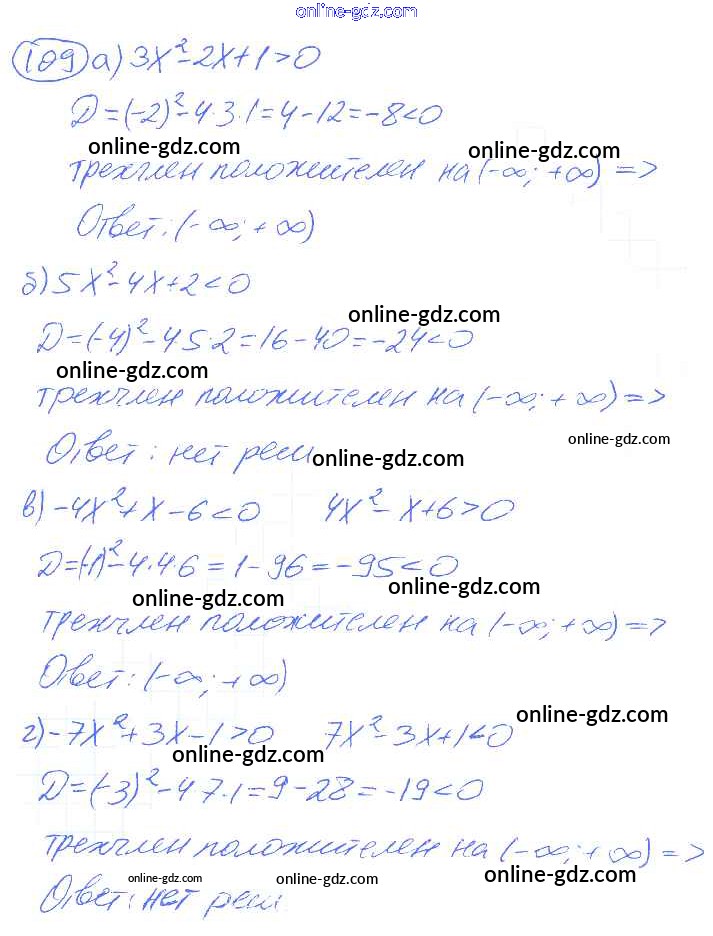 online-gdz.com
109 а) 3x²-2x+1>0
D=(-2)²-4·3·1=4-12=-8<0
online-gdz.com
online-gdz.com
трехчлен положителен на (-∞;+∞) =>
Ответ: (-∞;+∞)
б) 5x²-4x+2<0
online-gdz.com
D=(-4)²-4·5·2=16-40=-24<0
online-gdz.com
трехчлен положителен на (-∞;+∞) =>
online-gdz.com
Ответ: нет реш
online-gdz.com
в) -4x²+x-6<0 4x²-x+6>0
D=(-1)²-4·4·6=1-96=-95<0
online-gdz.com
online-gdz.com
трехчлен положителен на (-∞;+∞) =>
Ответ: (-∞;+∞)
online-gdz.com
г) -7x²+3x-1>0 7x²-3x+1<0
online-gdz.com
D=(-3)²-4·7·1=9-28=-19<0
трехчлен положителен на (-∞;+∞) =>
online-gdz.com
online-gdz.com
online-gdz.com
Ответ: нет реш.